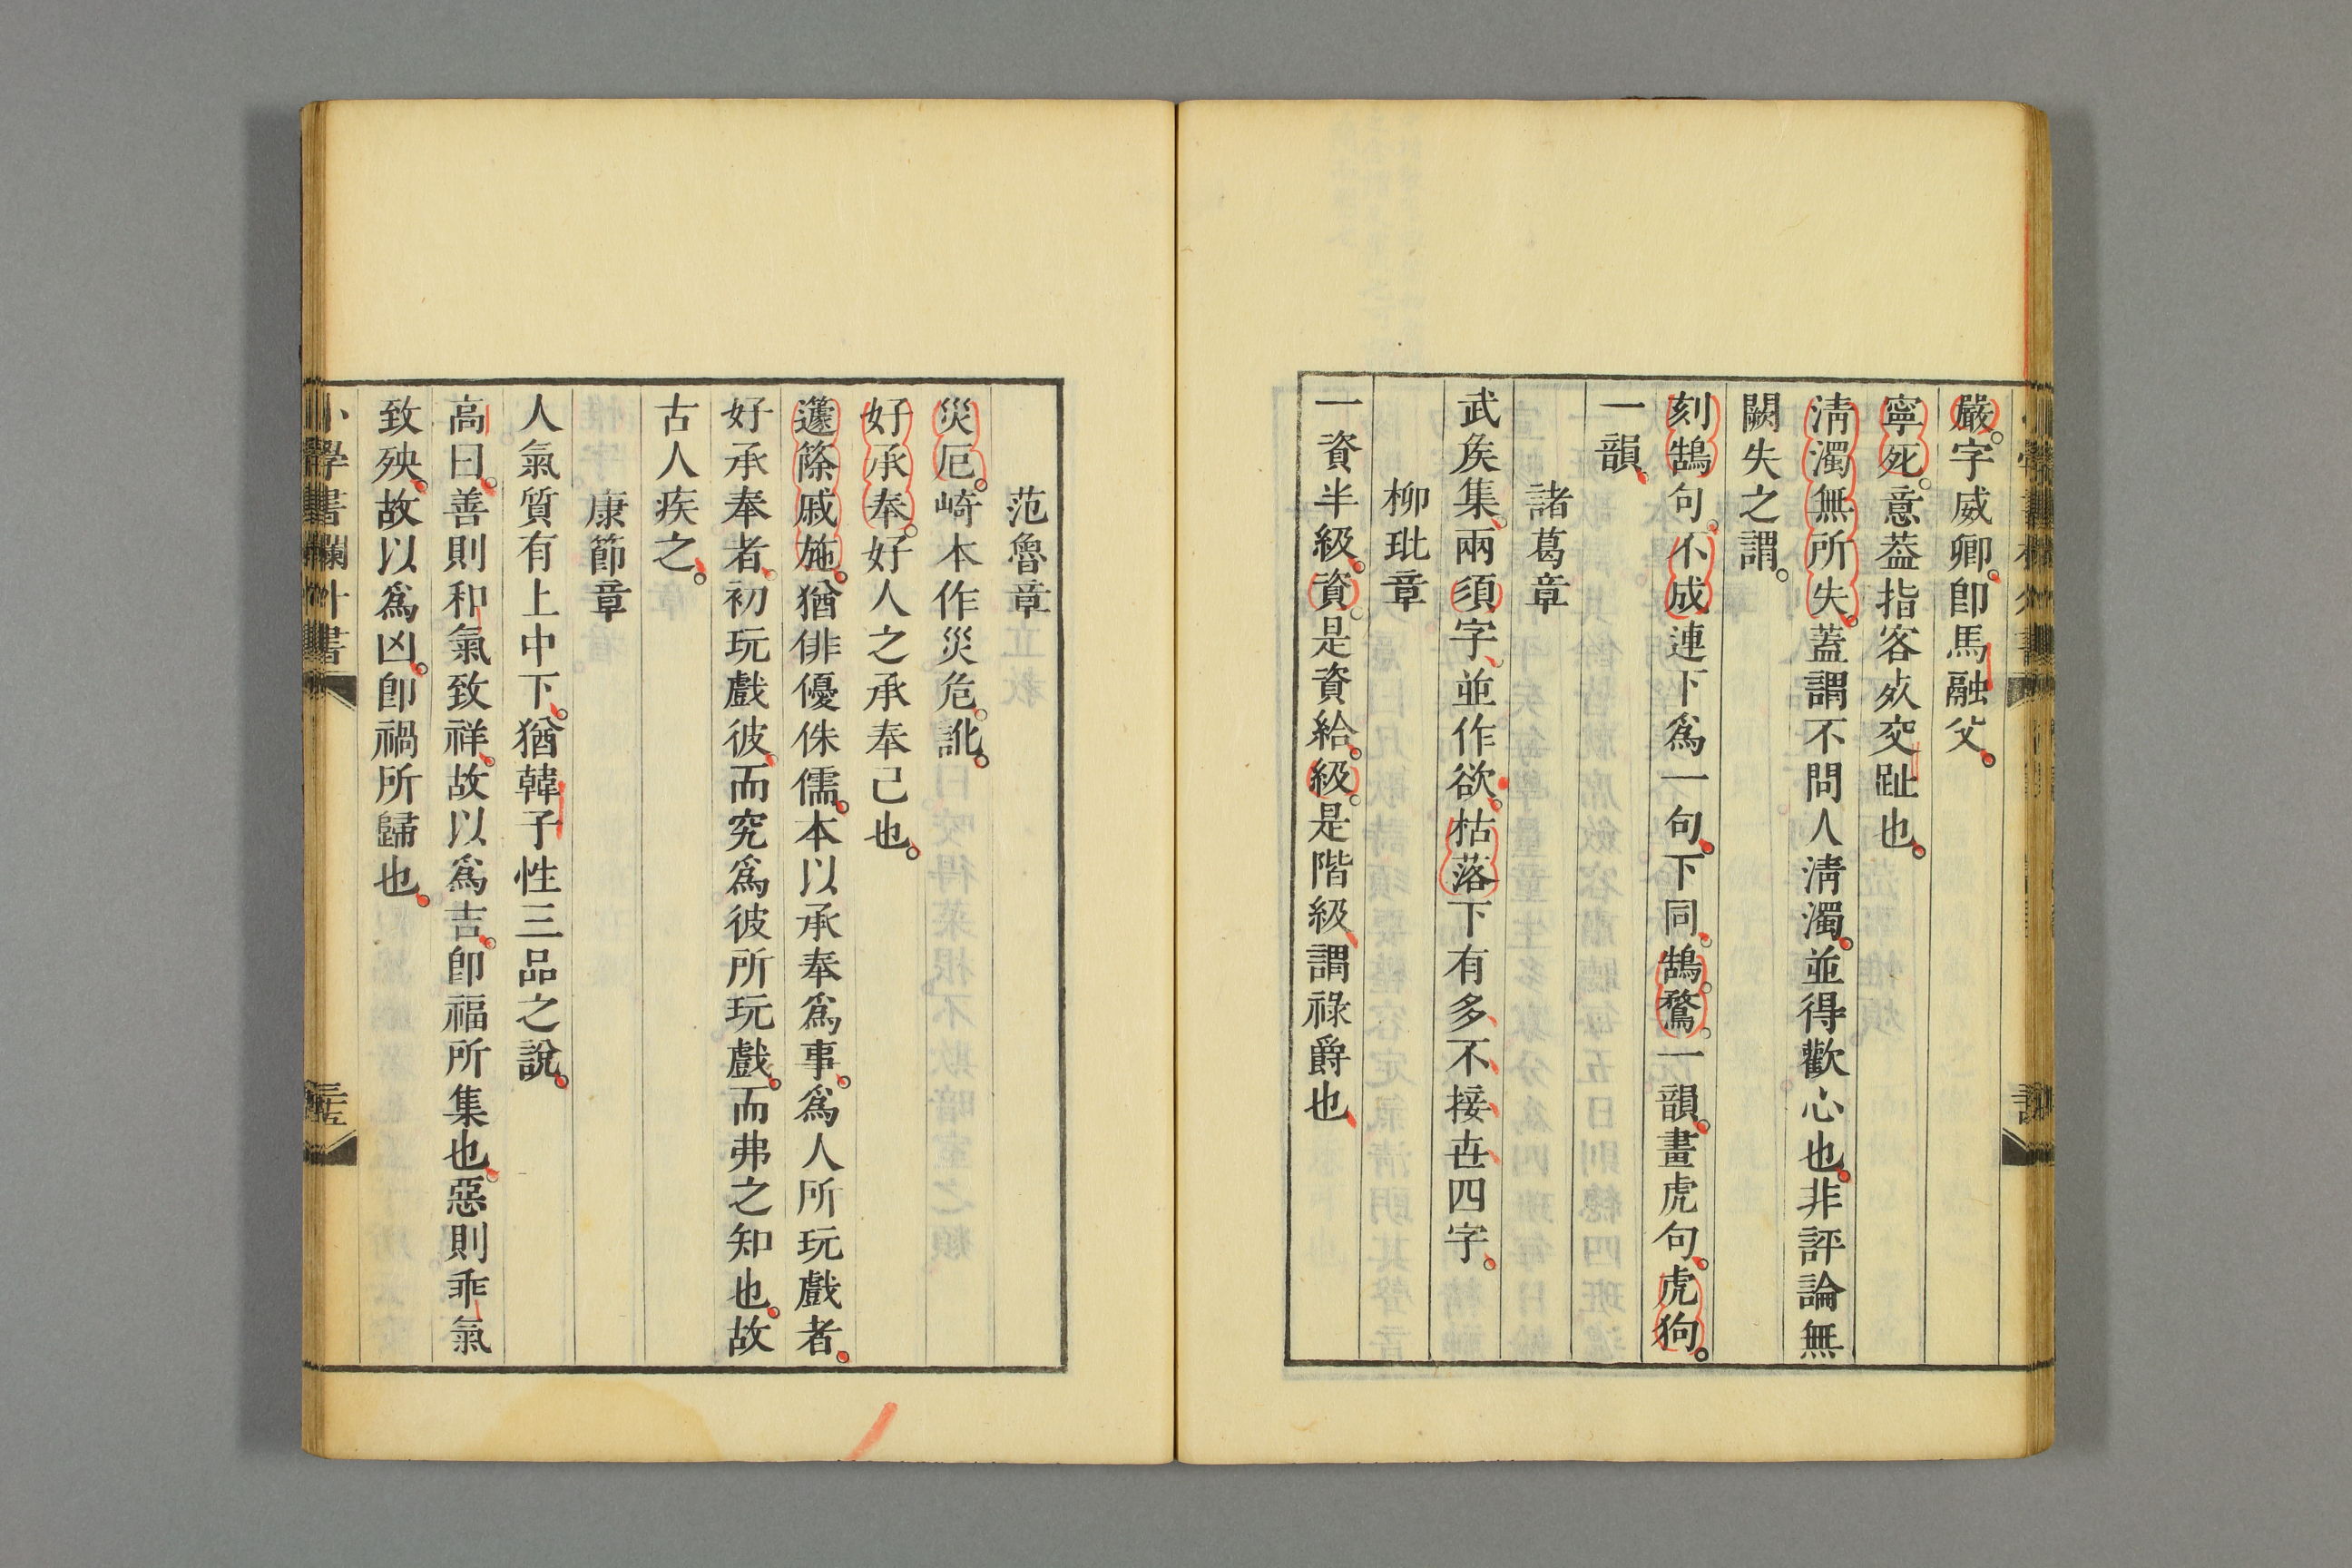 嚴。字威卿。卽馬融父。
寧死。意葢指客㱔交趾也。
淸濁無所失。蓋謂不問人淸濁。並得歡心也。非評論無
闕失之謂。
刻鵠句。不成連下爲一句。下同。鵠。鶩。一韻。畫虎句。虎狗。
一韻。
諸葛章
武矦集。兩須字。並作欲。枯落下有多不接丗四字。
柳玭章
一資半級。資。是資給。級。是階級。謂祿爵也
范魯章
災厄。崎本作災危。訛。
好承奉。好人之承奉己也。
籧篨戚施。猶俳優侏儒。本以承奉爲事。爲人所玩戲者。
好承奉者。初玩戲彼。而究爲彼所玩戲。而弗之知也。故
古人疾之。
康節章
人氣質有上中下。猶韓子性三品之說。
高曰。善則和氣致祥。故以爲吉。卽福所集也。惡則乖氣
致殃。故以爲凶。卽禍所歸也。
小學書欄外書
三十五